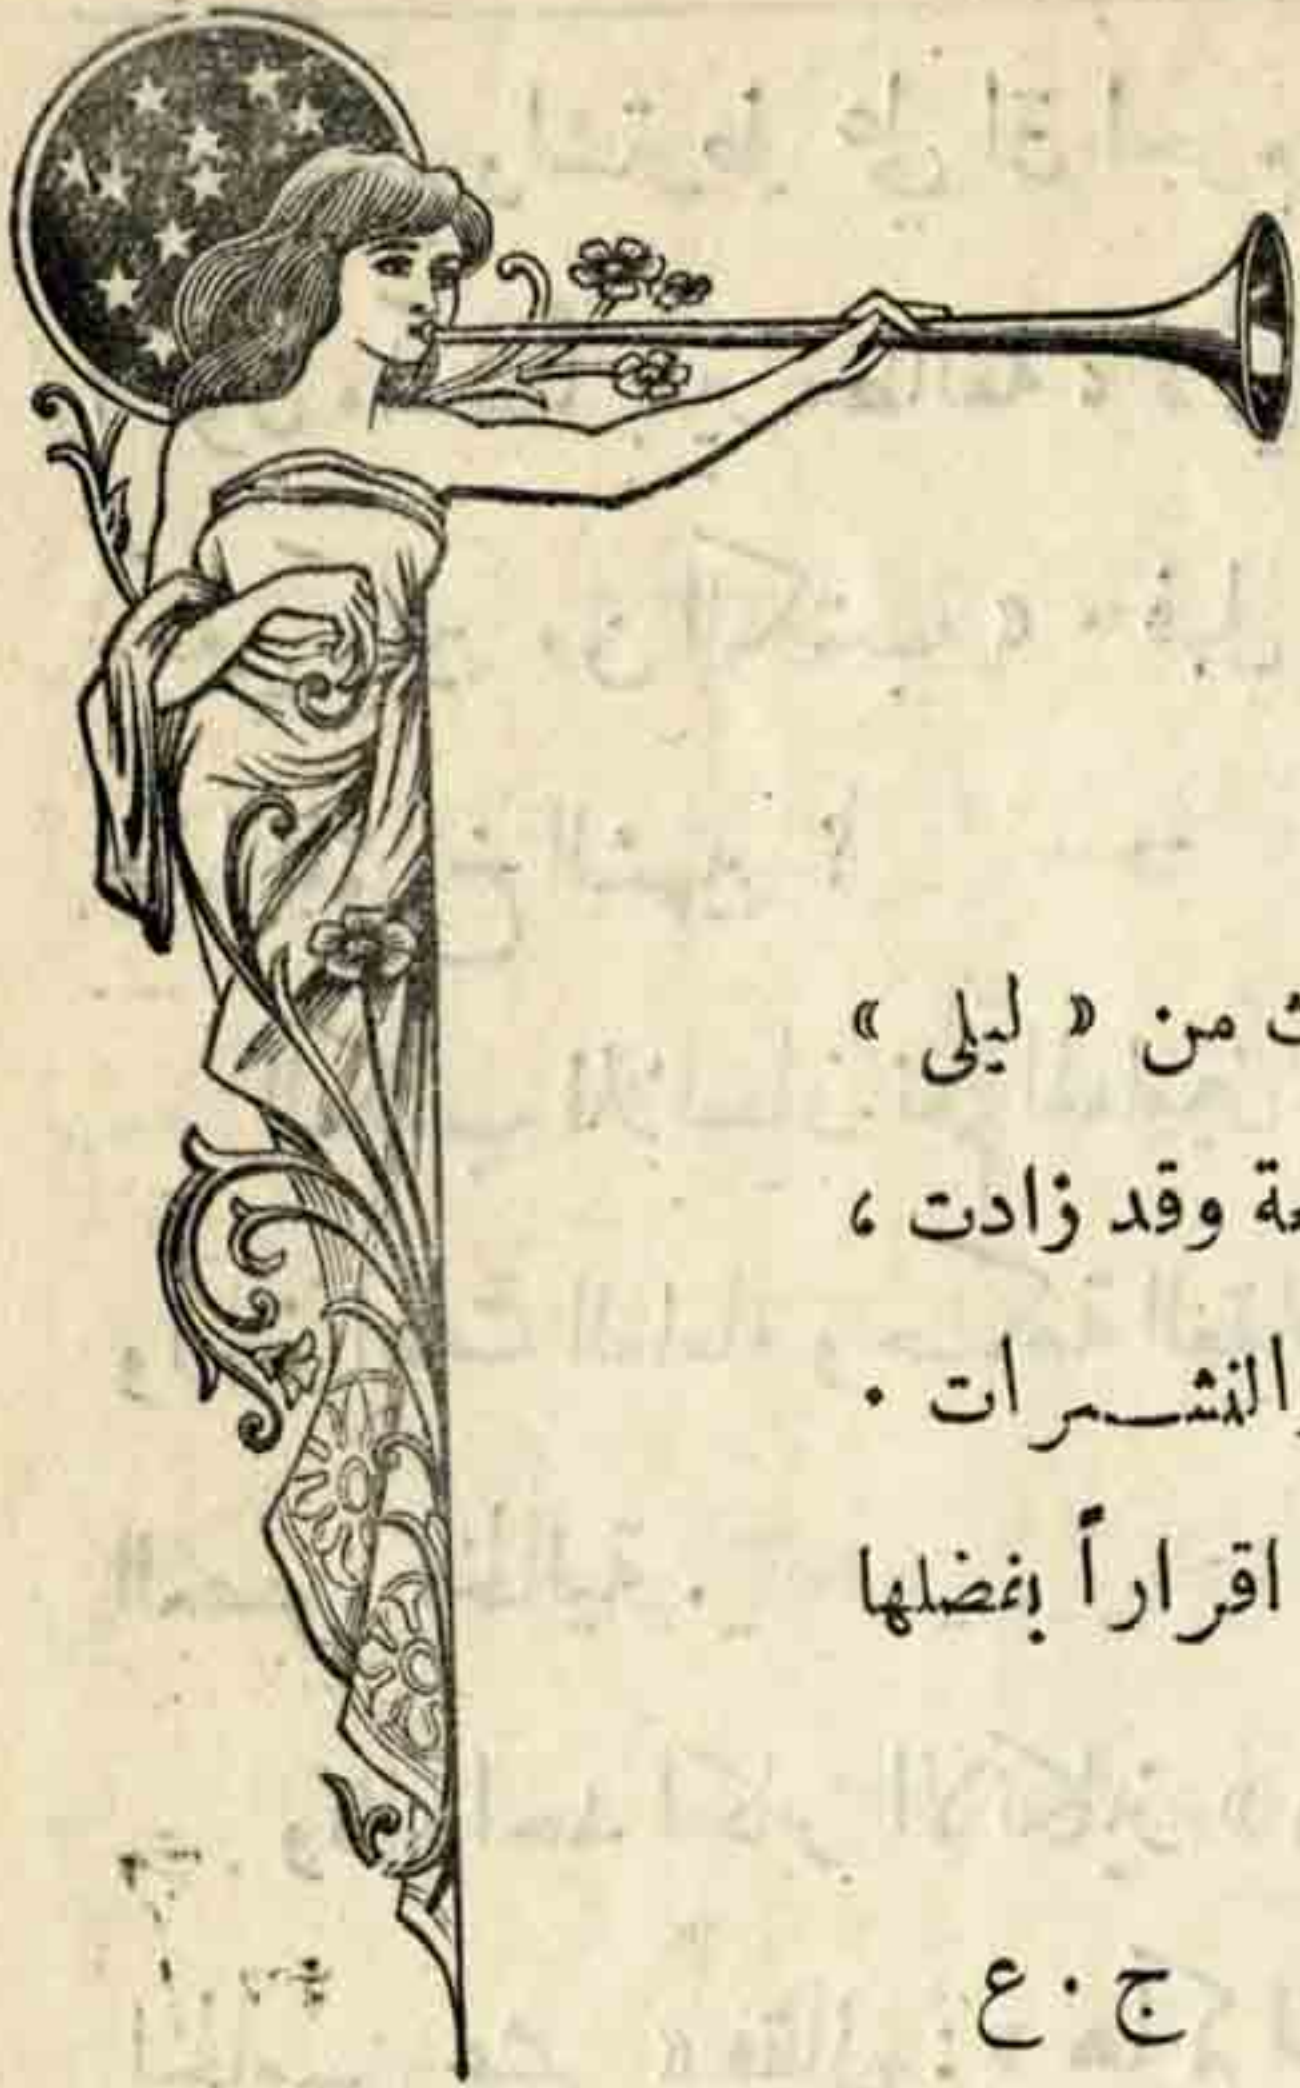 من « ليلى »
وقد زادت ،
والنشرات .
اقراراً بفضلها
ج . ع